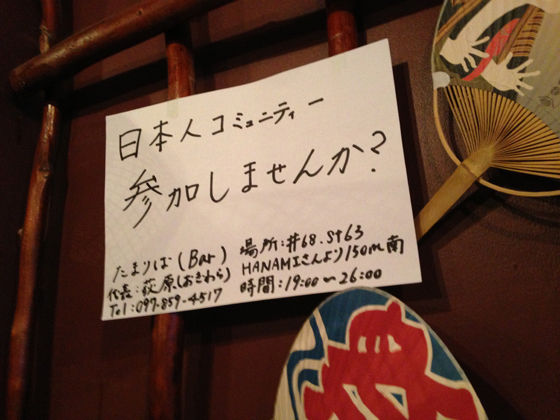 日本人コミュニティー
参加しませんか?
たまりば(Bar)
代表:荻原(おぎわら)
Tel:097-859-4517
場所:#68.St63
HANAMIさんより150m南
時間:19:00〜26:00